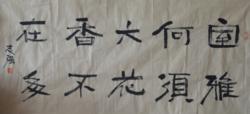 室雅
何須
大花
香不
在多